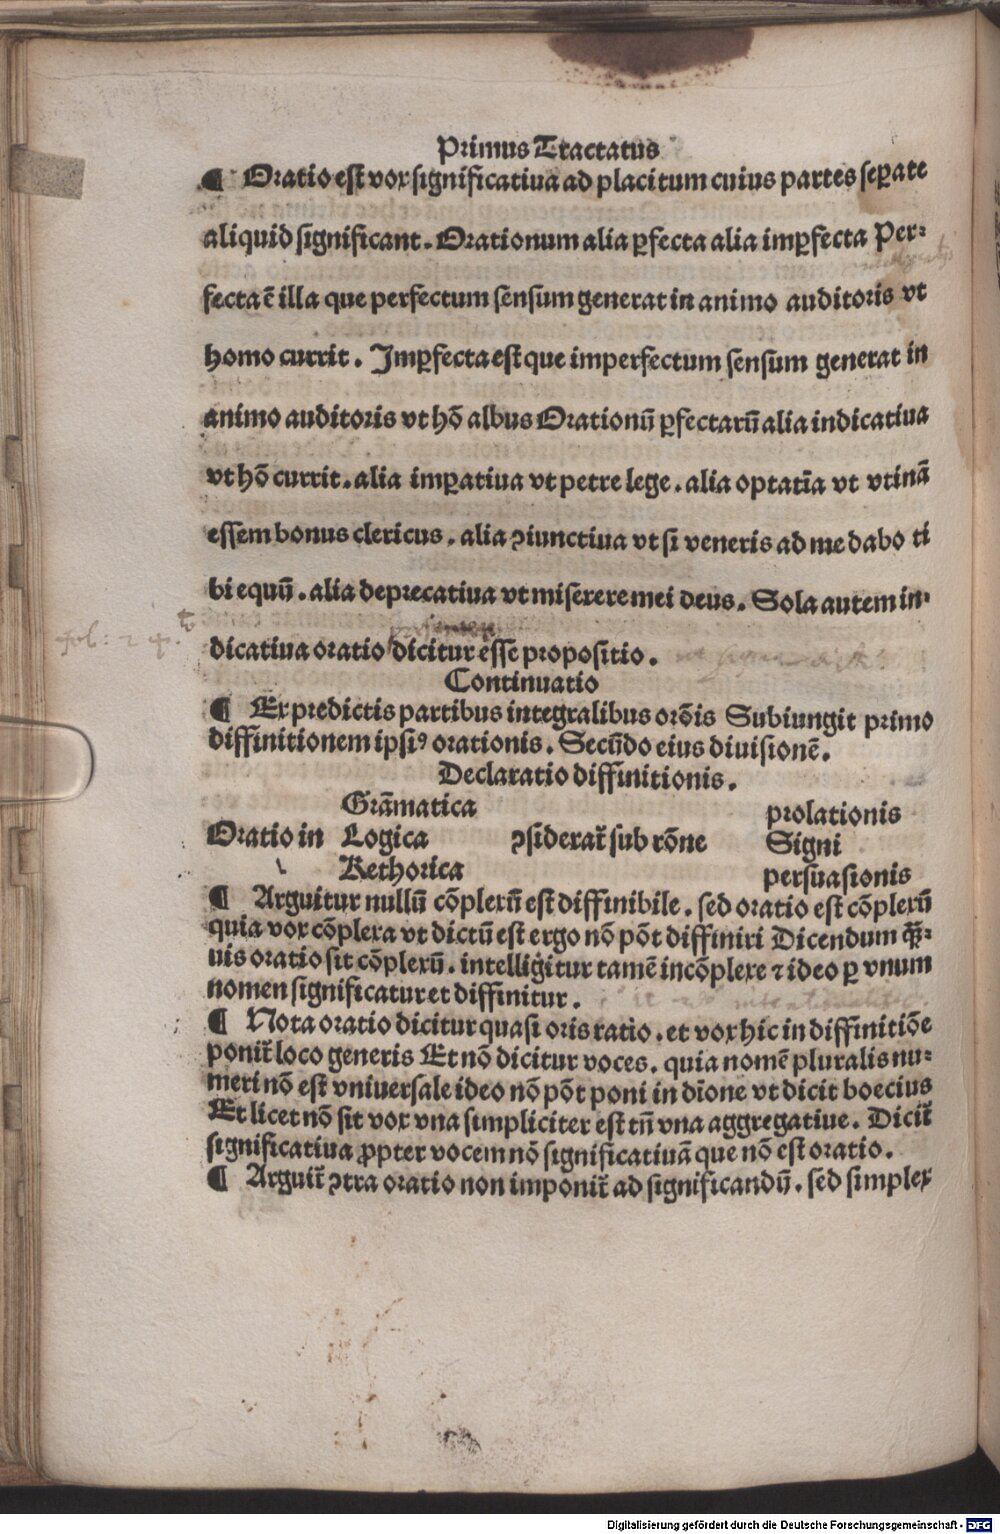 Primus Tractatus
¶ Oratio est vox significatiua ad placitum cuius partes seꝑate
aliquid significant. Orationum alia ꝑfecta alia imꝑfecta Per-
fecta ē illa que perfectum sensum generat in animo auditoris vt
homo currit. Imꝑfecta est que imperfectum sensum generat in
animo auditoris vt hō albus Orationū ꝑfectarū alia indicatiua
vt hō currit. alia imꝑatiua vt petre lege. alia optatīa vt vtinā
essem bonus clericus. alia ꝯiunctiua vt si veneris ad me dabo ti
bi equū. alia deprecatiua vt miserere mei deus. Sola autem in-
dicatiua oratio dicitur esse propositio.
Continuatio
¶ Ex predictis partibus integralibus orōis Subiungit primo
diffinitionem ipsiꝰ orationis. Secūdo eius diuisionē.
Declaratio diffinitionis.
Grāmatica prolationis
Oratio in Logica ꝯsiderat᷑ sub rōne Signi
Rethorica persuasionis
¶ Arguitur nullū cōplexū est diffinibile. sed oratio est cōplexū
quia vox cōplexa vt dictū est ergo nō pōt diffiniri Dicendum ꝙ̄-
uis oratio sit cōplexū. intelligitur tamē incōplexe ⁊ ideo ꝑ vnum
nomen significatur et diffinitur.
¶ Nota oratio dicitur quasi oris ratio. et vox hic in diffinitiōe
ponit᷑ loco generis Et nō dicitur voces. quia nomē pluralis nu-
meri nō est vniuersale ideo nō pōt poni in dīone vt dicit boecius
Et licet nō sit vox vna simpliciter est tn̄ vna aggregatiue. Dicit᷑
significatiua ꝓpter vocem nō significatiuā que nō est oratio.
¶ Arguit᷑ ꝯtra oratio non imponit᷑ ad significandū. sed simplex
Digitalisierung gefördert durch die Deutsche Forschungsgemeinschaft - DFG